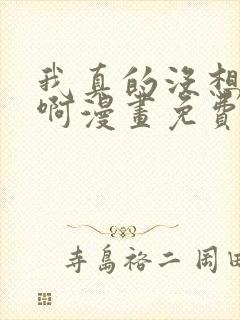 我真的没想
啊漫畫免費
寺島裕二 岡田